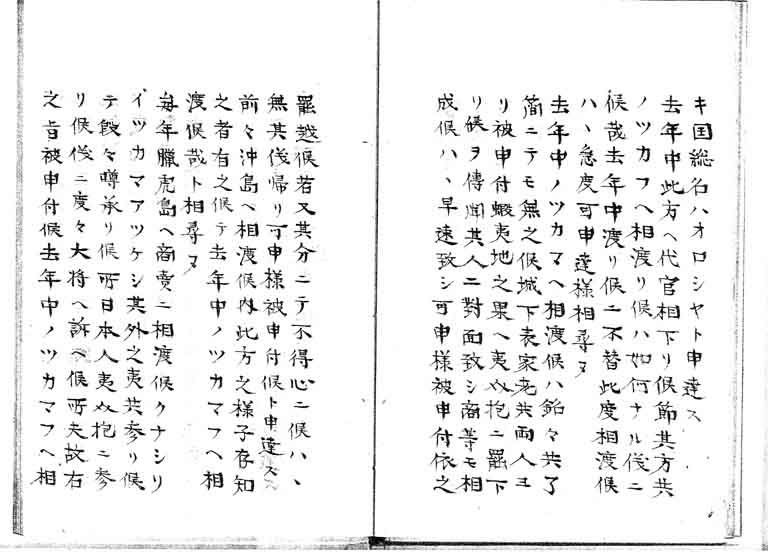 キ国総名ハオロシヤト申達ス
去年中此方ヘ代官相下リ候節其方共
ノツカフヘ相渡リ候ハ如何ナル侭ニ
候哉去年中渡リ候ニ不替此度相渡候
ハヽ急度可申達様相尋ヌ
去年中ノツカマヘ相渡候ハ銘々共了
簡ニテモ無之候城下表家老共両人ヨ
リ被申付蝦夷地之果ヘ夷々抱ニ罷下
リ候ヲ傳聞其人ニ對面致シ商等モ相
成候ハヽ早速致シ可申様被申付依之
罷越候若又其分ニテ不得心ニ候ハヽ
無其侭帰リ可申様被申付候ト申達ス
前々沖島ヘ相渡候内此方之様子存知
之者有之候テ去年中ノツカマフヘ相
渡候哉ト相尋ヌ
毎年臘虎島ヘ商賣ニ相渡候クナシリ
イツカマアツケシ其外之夷共参リ候
テ段々噂承リ候所日本人夷々抱ニ参
リ候侭ニ度々大将ヘ訴ヘ候所夫故右
之旨被申付候去年中ノツカマフヘ相